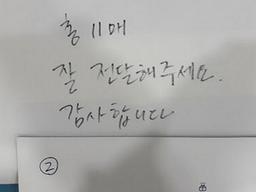 홍 11매
잘 전달해주세요.
감사합니다
②